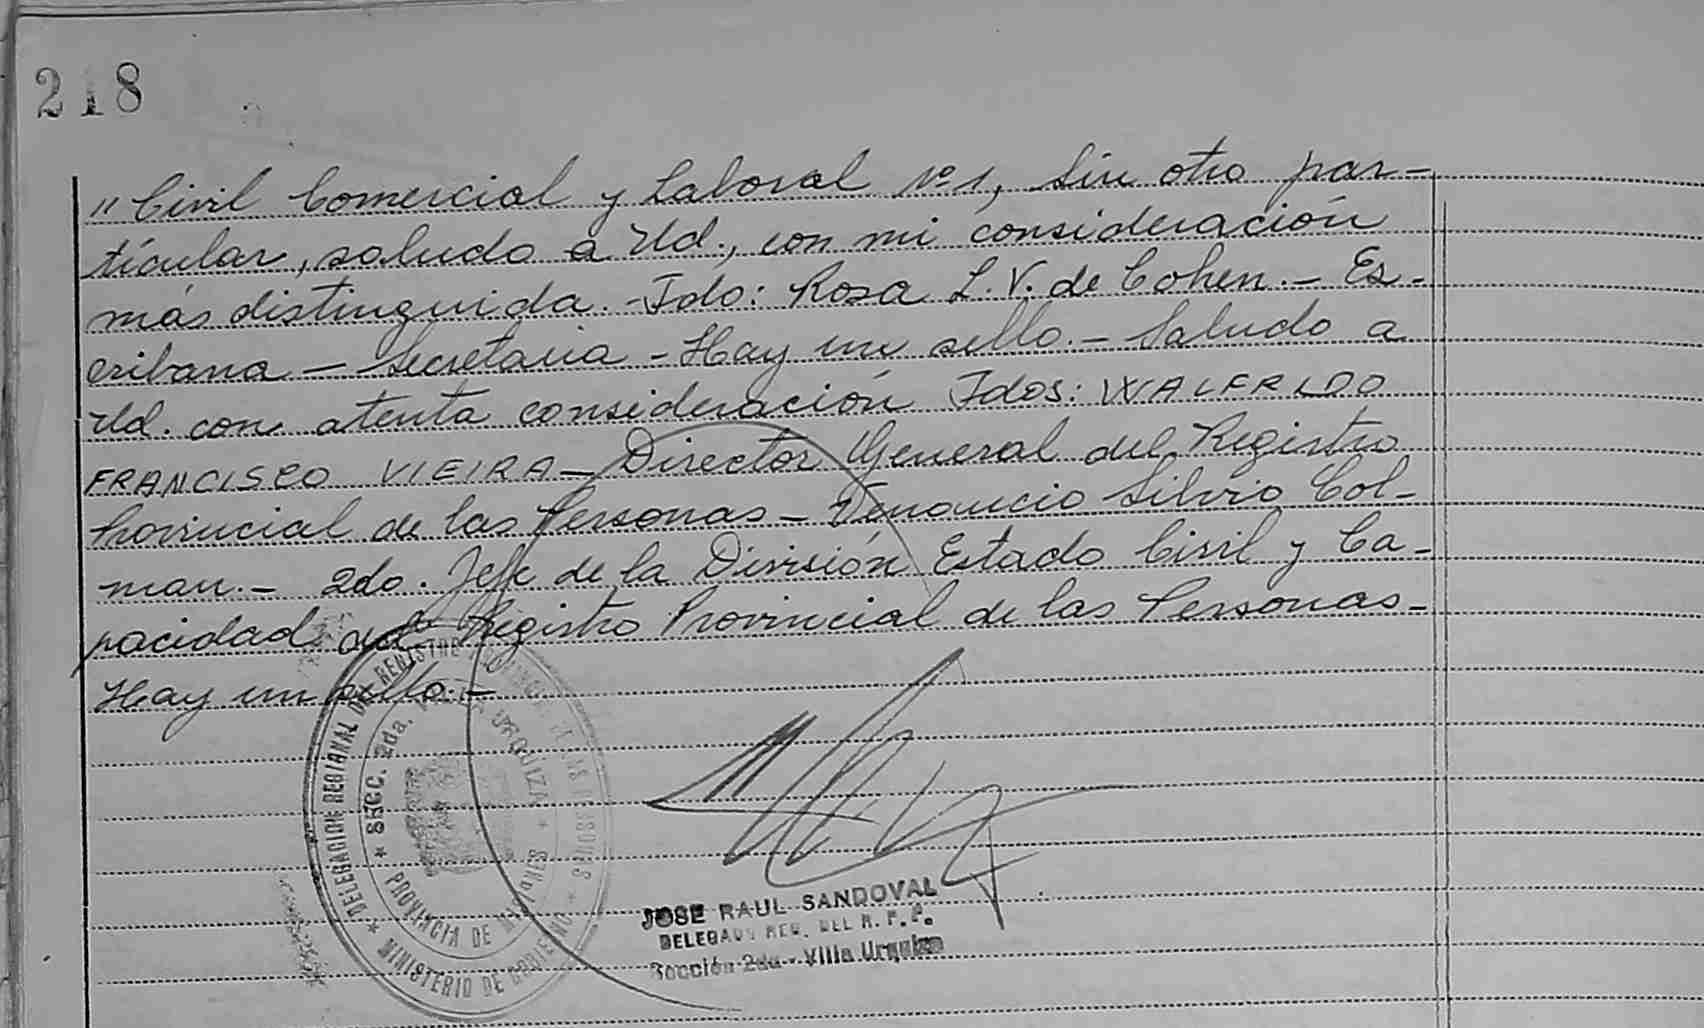 218
"Civil Comercial y Laboral Nº1, Sin otro par-
ticular, saludo a Ud., con mi consideración
más distinguida.-Fdo: Rosa L. V. de Cohen.- Es-
cribana - Secretaria - Hay un sello.- Saludo a
Ud. con atenta consideración Fdos: WALFRIDO
FRANCISCO VIEIRA - Director General del Registro
Provincial de las Personas - Venancio Silvio Col-
man.- 2do. Jefe de la División Estado Civil y Ca-
pacidad del Registro Provincial de las Personas-
Hay un sello.-
* DELEGACION REGIONAL DEL REGISTRO PROVINCIAL DE LAS PERSONAS *
MINISTERIO DE GOBIERNO
* SECC. 2da. VILLA URQUIZA *
PROVINCIA DE MISIONES
JOSE RAUL SANDOVAL
DELEGADO REG. DEL R. P. P.
Sección 2da - Villa Urquiza